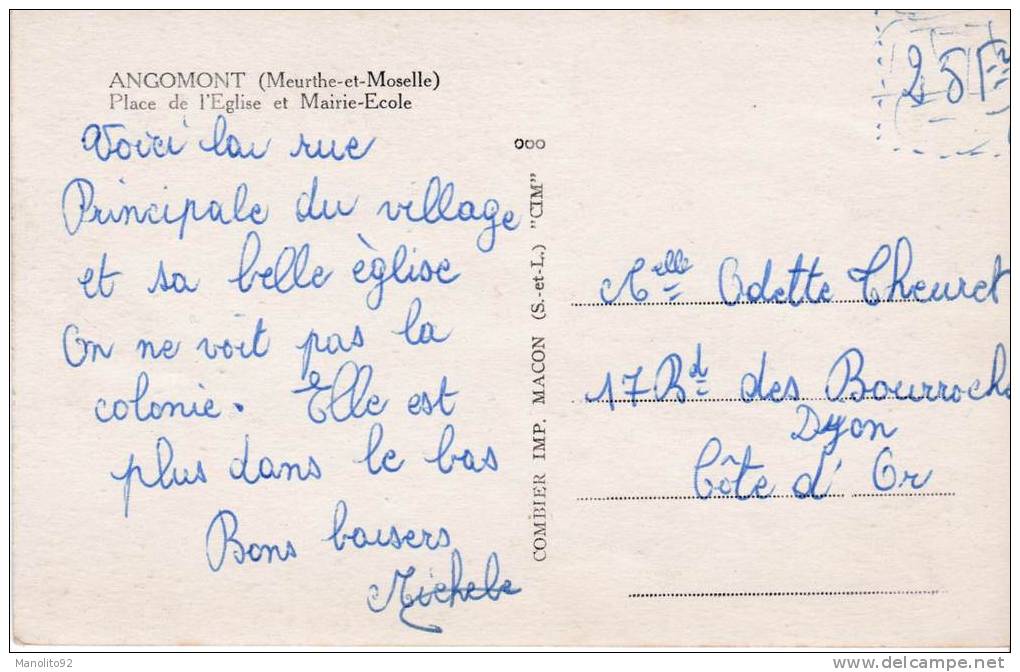 ANGOMONT (Meurthe-et-Moselle)
Place de l'Eglise et Mairie-Ecole
Voici la rue
Principale du village
et sa belle èglise
On ne voit pas la
colonie. Elle est
plus dans le bas
Bons baisers
Michele
COMBIER IMP. MACON (S.-et-L.) "CIM"
Melle Odette Theuret
17 Bd des Bourroche
Dyon
Côte d'Or
Manolito92
www.delcampe.net